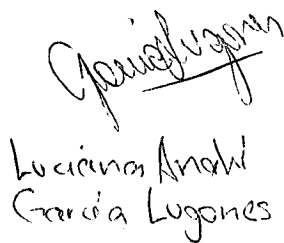 GarciaLugones
Luciana Anahí
García Lugones